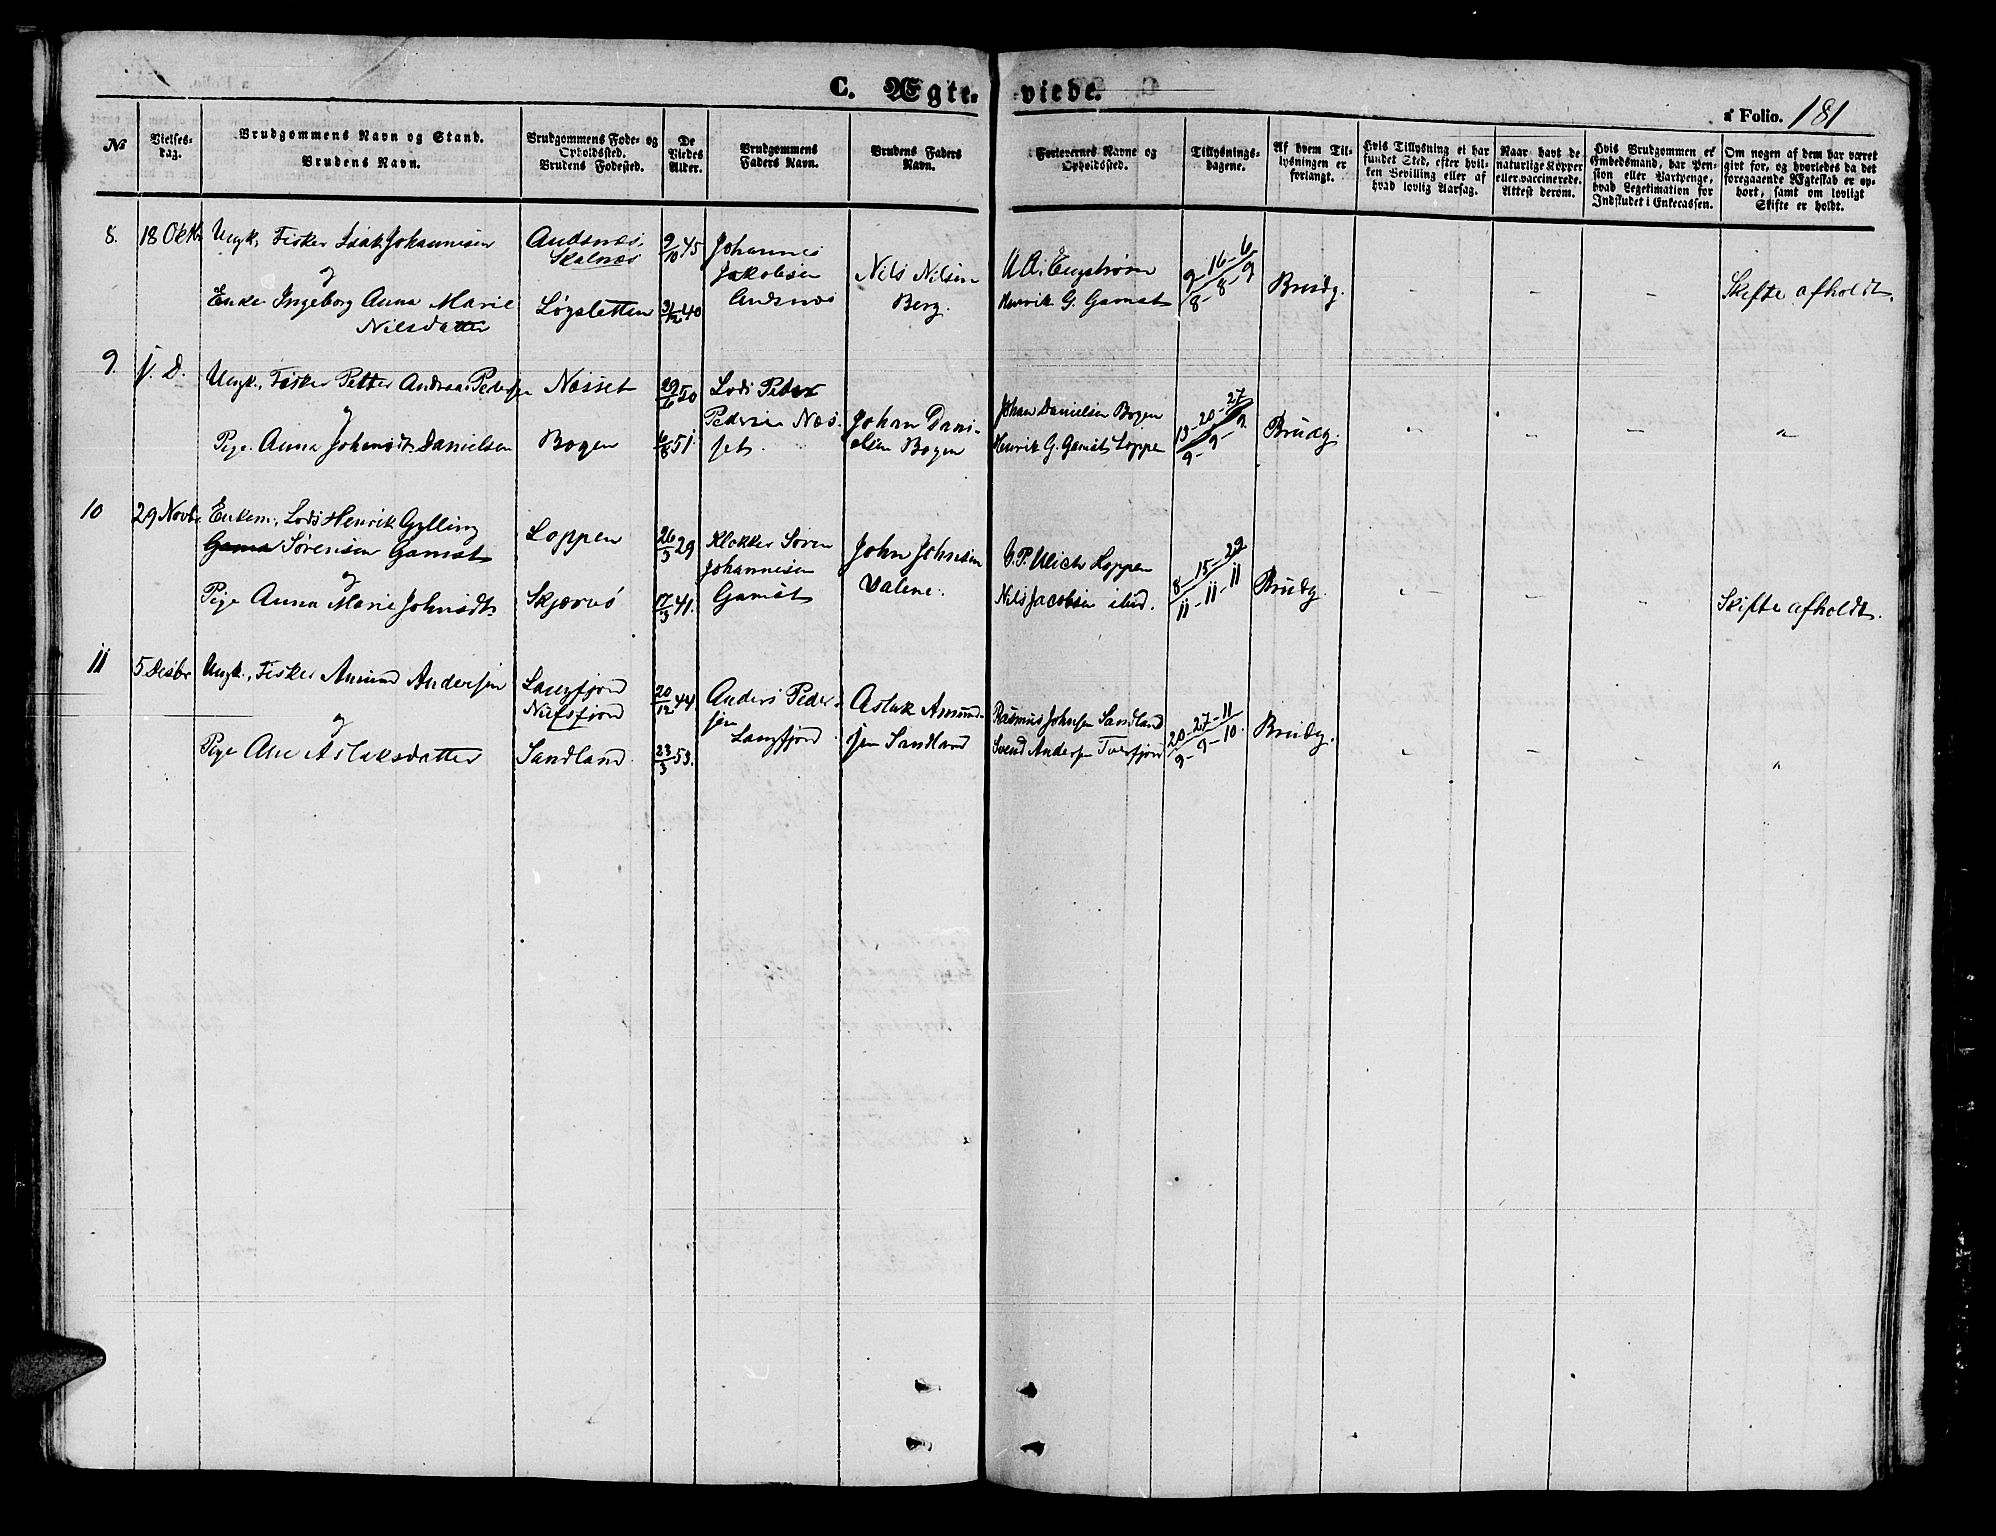 C. Ægte-viede.
a Folio. 181
№
Vielses-
dag.
Brudgommens Navn og Stand.
Brudens Navn.
Brudgommens Føde- og
Opholdssted.
Brudens Fødested.
De
Viedes
Alter.
Brudgommens
Faders Navn.
Brudens Faders
Navn.
Forlovernes Navne og
Opholdssted.
Tillysnings-
dagene.
Af hvem Til-
lysningen er
forlangt.
Hvis Tillysning ei har
fundet Sted, efter hvil-
ken Bevilling eller af
hvad lovlig Aarsag.
Naar havt de
naturlige Kopper
eller vaccinerede.
Attest derom.
Hvis Brudgommen er
Embedsmand, har Pen-
sion eller Vartpenge,
hvad Legitimation for
Indskudet i Enkecassen.
Om nogen af dem har været
gift før, og hvorledes da det
foregaaende Ægteskab er op-
hørt, samt om lovligt
Skifte er holdt.
8.
18 Oktr
Ungk, Fisker Isak Johannesen
og
Enke Ingeborg Anna Marie
Nilsdatter
Andsnæs,
Skalnæs
Løgsletten
9/10 45
31/12 40
Johannes
Jakobsen
Andsnæs
Nils Nilsen
Berg.
Engstrøm
Henrik G. Gamst
9-16-6
8-8-9
Brudg.
-
-
-
Skifte afholdt.
9.
s. D.
Ungk., Fisker Petter Andreas Pedersen
og
Pige Anna Johansdtr Danielsen
Næsset
Bogen
29/6 50
6/8 51
Lods Peder
Pedersen Næs-
set.
Johan Dani-
elsen Bogen
Johan Danielsen Bogen
Henrik G. Gamst Loppen
13-20-27
9-9-9
Brudg.
"
"
"
"
10
29 Novbr
Enkem., Lods Henrik Gylling
Gams Sørensen Gamst
og
Pige Anna Marie Johnsdt.
Loppen
Skjærnø
26/3 29
17/3 41.
Klokker Søren
Johannesen
Gamst
John Johnsen
Valene.
G. P. Ulich Loppen
Nils Jacobsen ibid.
8-15-22
11-11-11
Brudg.
"
-
"
Skifte afholdt.
11
5 Desbr
Ungk., Fisker Amund Andersen
og
Pige Ane Aslaksdatter
Langfjord
Nufsfjord
Sandland
20/12 44
23/3 53.
Anders Peder-
sen
Langfjord.
Aslak Amund-
sen Sandland
Rasmus Johnsen Sandland
Svend Andersen Tverfjord
20-27-11
9-9-10.
Brudg.
"
"
"
"